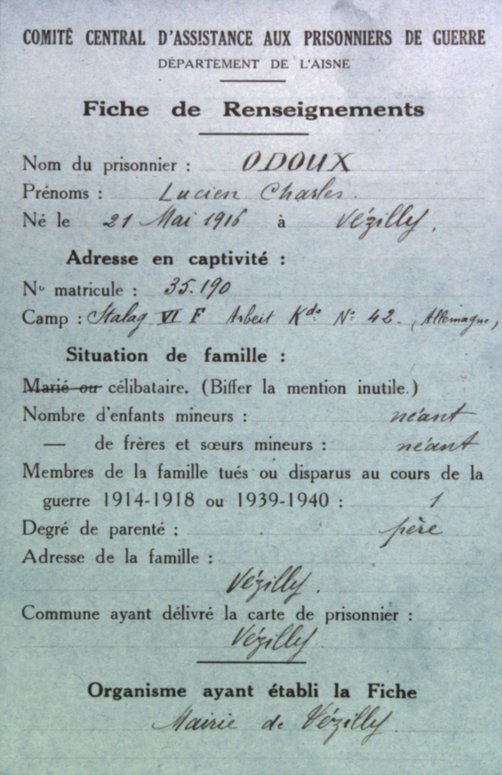 COMITÉ CENTRAL D'ASSISTANCE AUX PRISONNIERS DE GUERRE
DÉPARTEMENT DE L'AISNE
Fiche de Renseignements
Nom du prisonnier : ODOUX
Prénoms : Lucien Charles.
Né le 21 Mai 1916 à Vézilly.
Adresse en captivité :
No matricule : 35.190
Camp : Stalag VI F Arbeit Kdo No 42. (Allemagne)
Situation de famille :
Marié ou célibataire. (Biffer la mention inutile.)
Nombre d'enfants mineurs : néant
— de frères et sœurs mineurs : néant
Membres de la famille tués ou disparus au cours de la
guerre 1914-1918 ou 1939-1940 : 1
Degré de parenté : père
Adresse de la famille :
Vézilly.
Commune ayant délivré la carte de prisonnier :
Vézilly.
Organisme ayant établi la Fiche
Mairie de Vézilly.